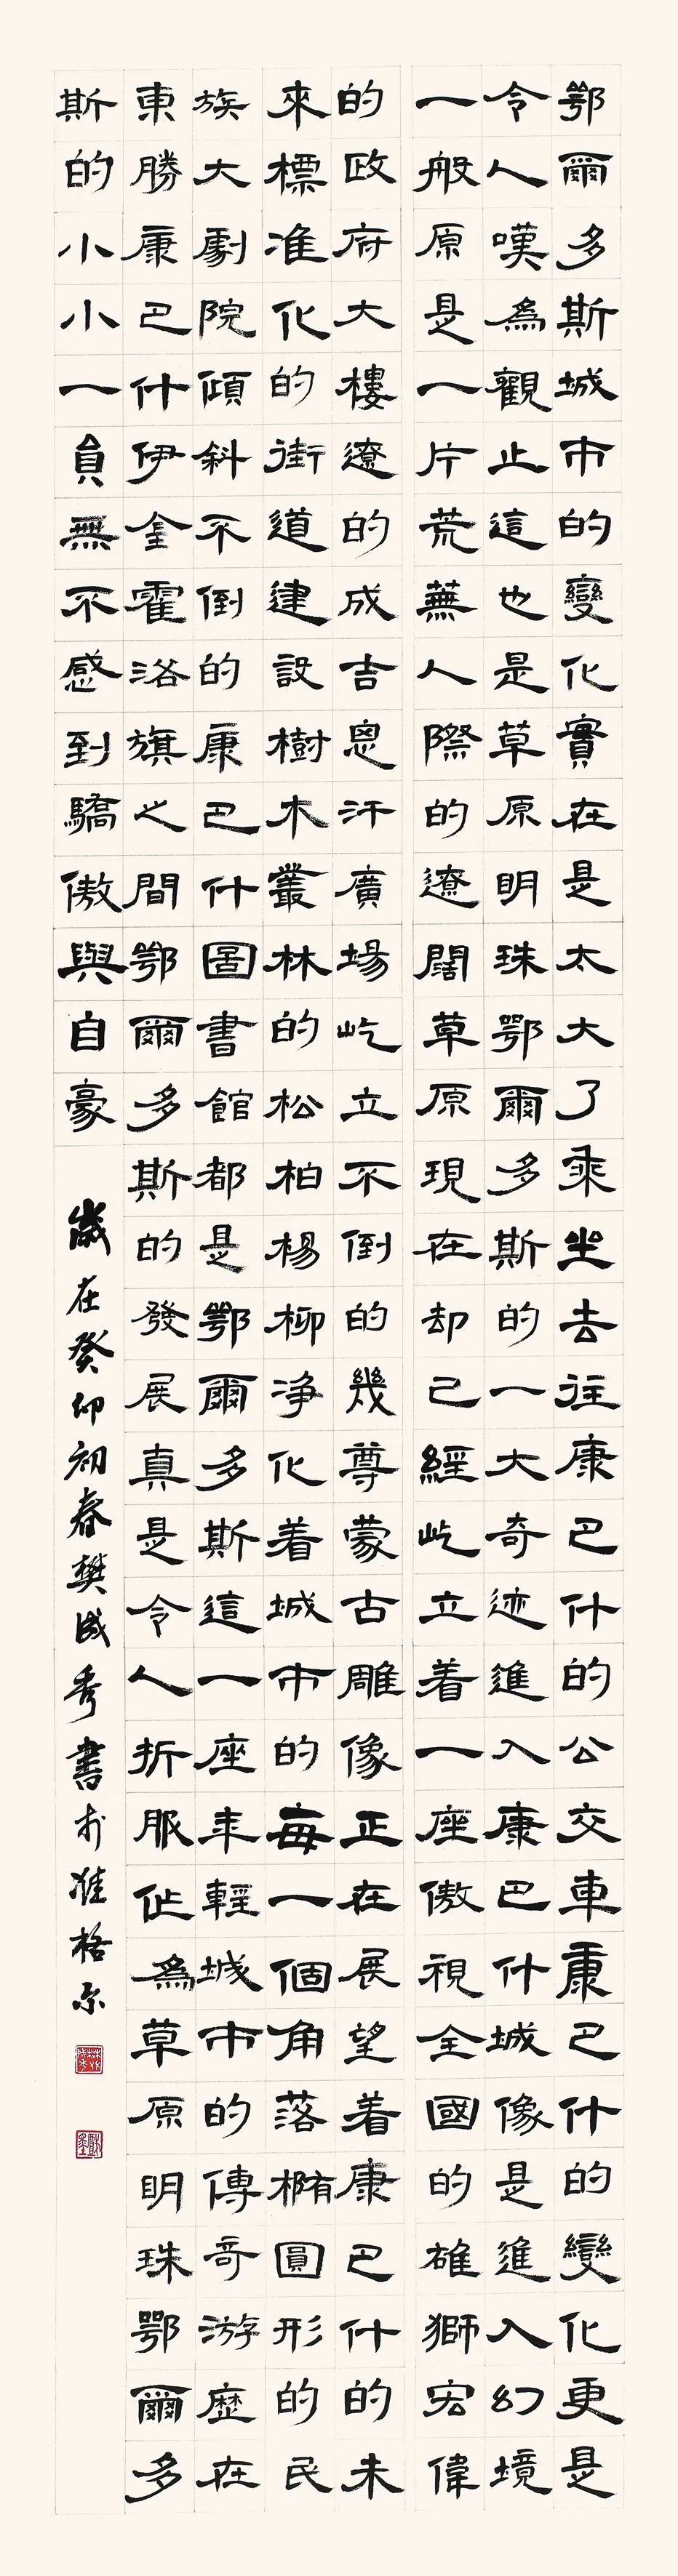 鄂爾多斯城市的變化實在是太大了乘坐去往康巴什的公交車康巴什的變化更是
令人嘆為觀止這也是草原明珠鄂爾多斯的一大奇迹進入康巴什城像是進入幻境
一般原是一片荒蕪人際的遼闊草原現在却已經屹立着一座傲視全國的雄獅宏偉
的政府大樓遼的成吉思汗廣場屹立不倒的幾尊蒙古雕像正在展望着康巴什的未
來標准化的街道建設樹木叢林的松柏楊柳净化着城市的每一個角落橢圓形的民
族大劇院傾斜不倒的康巴什圖書館都是鄂爾多斯這一座年輕城市的傳奇游歷在
東勝康巴什伊金霍洛旗之間鄂爾多斯的發展真是令人折服作為草原明珠鄂爾多
斯的小小一員無不感到驕傲與自豪
歲在癸卯初春樊成秀書於准格尔